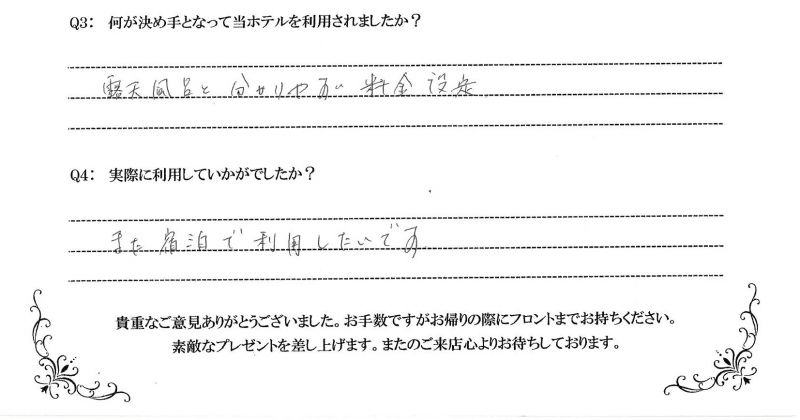 Q3: 何が決め手となって当ホテルを利用されましたか?
露天風呂と 分かりやすい 料金 設定
Q4: 実際に利用していかがでしたか?
また 宿泊で 利用したいです
貴重なご意見ありがとうございました。お手数ですがお帰りの際にフロントまでお持ちください。
素敵なプレゼントを差し上げます。またのご来店心よりお待ちしております。